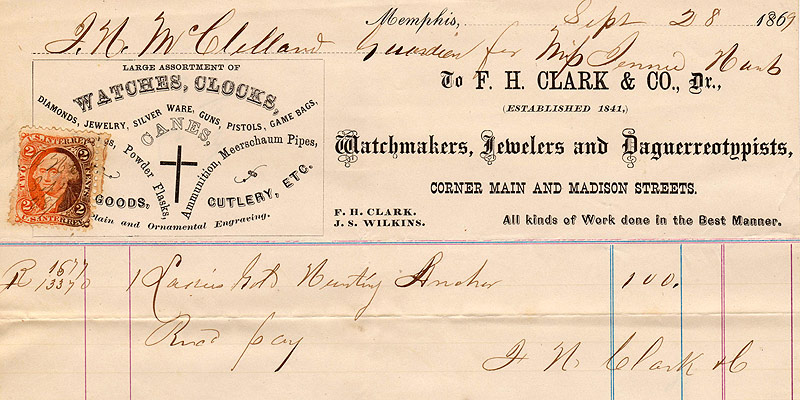 Memphis, Sept 28 1869
J. N. McClelland Guardian for Miss Jennie Hunt
To F. H. CLARK & CO., Dr.,
(ESTABLISHED 1841,)
Watchmakers, Jewelers and Daguerreotypists,
CORNER MAIN AND MADISON STREETS.
F. H. CLARK.
J. S. WILKINS.
All kinds of Work done in the Best Manner.
LARGE ASSORTMENT OF
WATCHES, CLOCKS,
DIAMONDS, JEWELRY, SILVER WARE, GUNS, PISTOLS, GAME BAGS,
CANES,
Powder Flasks,
Ammunition, Meerschaum Pipes,
GOODS,
CUTLERY, ETC.
Plain and Ornamental Engraving.
U.S. INTER. REV.
2 2
TWO
2 2
U.S. INTER. REV.
R 1677
13370
1 Ladies Hunting Anchor 100.
Recd pay
F H Clark & Co